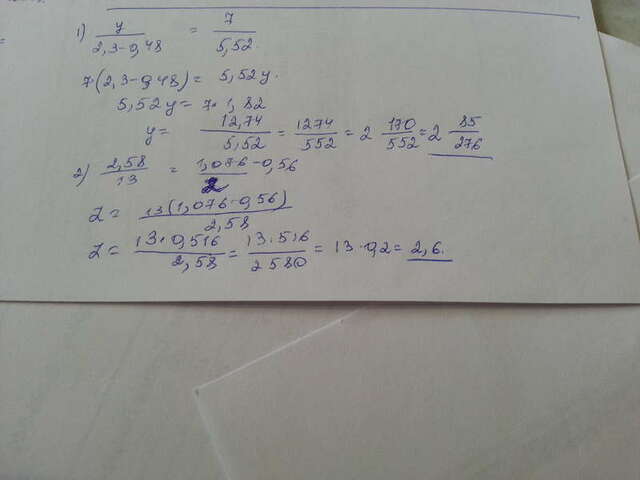 1) y/(2,3-0,48) = 7/5,52
7(2,3-0,48) = 5,52y.
5,52y = 7·1,82
y = 12,74/5,52 = 1274/552 = 2 170/552 = 2 85/276
2) 2,58/13 = (1,076-0,56)/z
z = 13(1,076-0,56)/2,58
z = 13·0,516/2,58 = 13·516/2580 = 13·0,2 = 2,6.